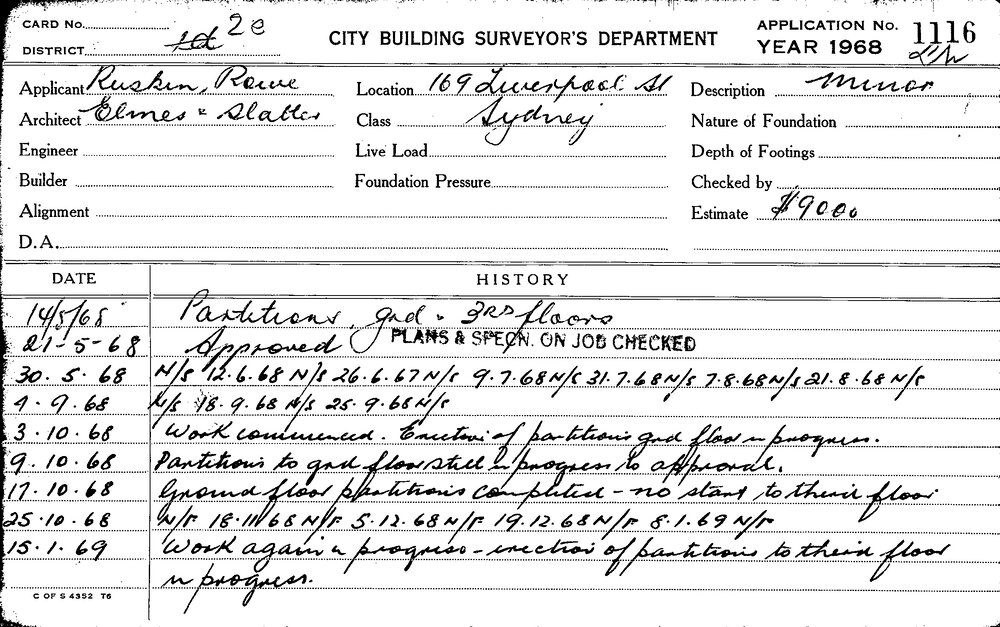 CARD No.
2e
DISTRICT
CITY BUILDING SURVEYOR'S DEPARTMENT
APPLICATION No. 1116
YEAR 1968
Applicant Ruskin, Rowe
Location 169 Liverpool St
Description Minor
Architect Elmes & Slatter
Class Sydney
Nature of Foundation
Engineer
Live Load
Depth of Footings
Builder
Foundation Pressure
Checked by
Alignment
Estimate $9000
D.A.
DATE HISTORY
14/5/68 Partitions, grd & 3RD floors
21-5-68 Approved PLANS & SPECN. ON JOB CHECKED
30.5.68 N/S 12.6.68 N/S 26.6.67 N/S 9.7.68 N/S 31.7.68 N/S 7.8.68 N/S 21.8.68 N/S
4.9.68 N/S 18.9.68 N/S 25.9.68 N/S
3.10.68 Work commenced. Erection of partitions grd floor in progress.
9.10.68 Partitions to grd floor still in progress to approval.
17.10.68 Ground floor partitions completed - no start to third floor
25.10.68 N/F 18.11.68 N/F 5.12.68 N/F 19.12.68 N/F 8.1.69 N/F
15.1.69 Work again in progress - erection of partitions to third floor
in progress.
C OF S 4352 T6